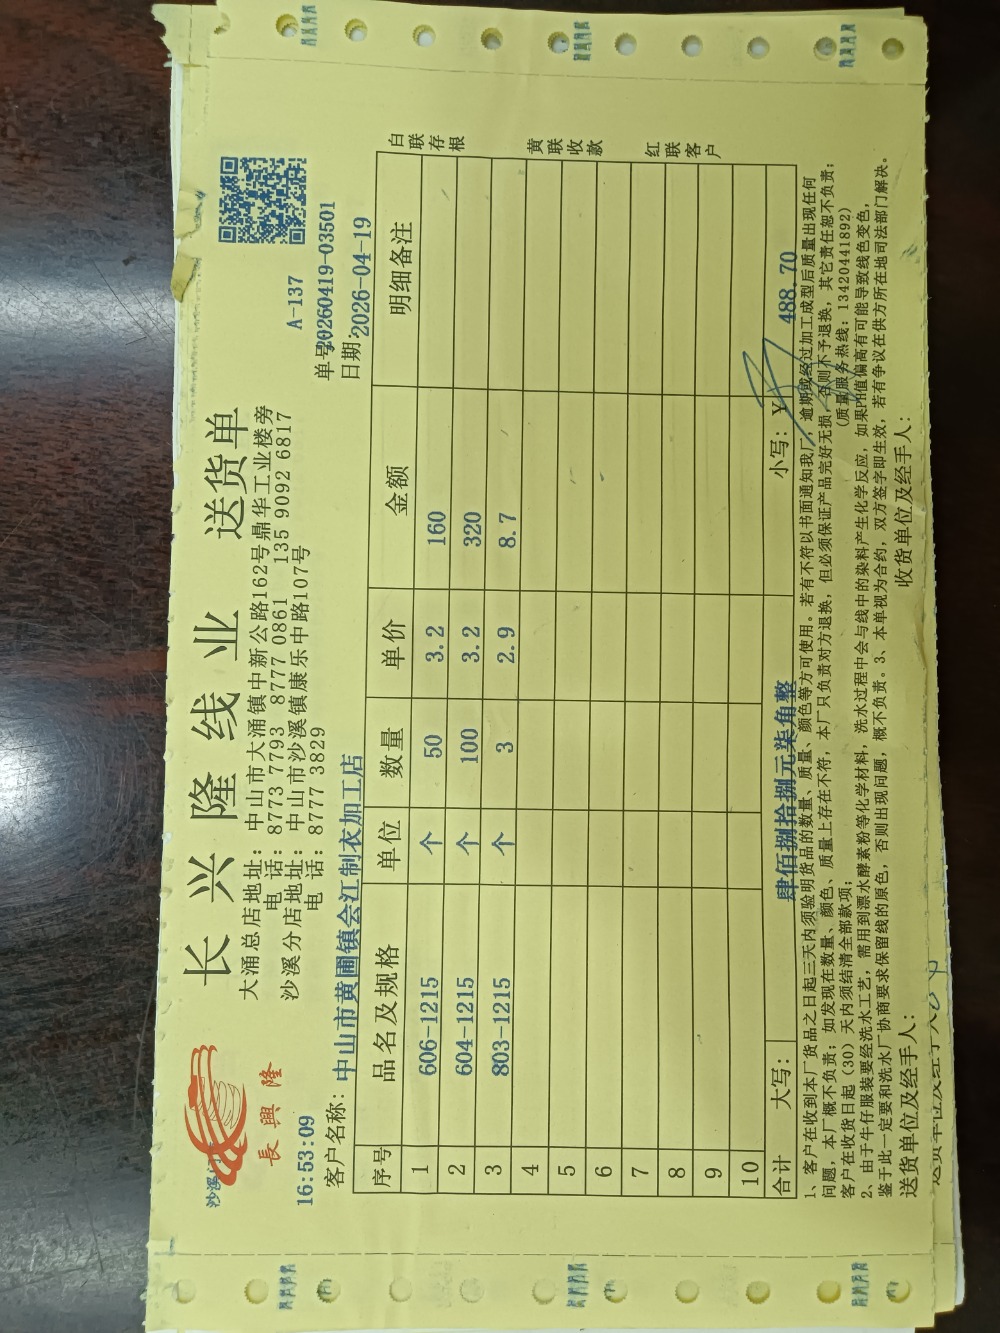 长兴隆线业 送货单
長興隆
大涌总店地址：中山市大涌镇中新公路162号鼎华工业楼旁
电 话：8773 7793 8777 0861 135 9092 6817
沙溪分店地址：中山市沙溪镇康乐中路107号
电 话：8777 3829
A-137
16:53:09
单号:20260419-03501
客户名称：中山市黄圃镇会江制衣加工店
日期:2026-04-19
序号 品名及规格 单位 数量 单价 金额 明细备注
1 606-1215 个 50 3.2 160
2 604-1215 个 100 3.2 320
3 803-1215 个 3 2.9 8.7
4
5
6
7
8
9
10
合计 大写：肆佰捌拾捌元柒角整 小写：￥ 488.70
白联存根
黄联收款
红联客户
1、客户在收到本厂货品之日起三天内须验明货品的数量、质量、颜色等方可使用。若有不符以书面通知我厂，逾期或经过加工成型后质量出现任何
问题，本厂概不负责；如发现在数量、颜色、质量上存在不符，本厂只负责对方退换，但必须保证产品完好无损，否则不予退换，其它责任恕不负责；
客户在收货日起（30）天内须结清全部款项； （质量服务热线：13420441892）
2、由于牛仔服装要经洗水工艺，需用到漂水酵素粉等化学材料，洗水过程中会与线中的染料产生化学反应，如果PH值偏高有可能导致线色变色，
鉴于此一定要和洗水厂协商要求保留线的原色，否则出现问题，概不负责。3、本单视为合约，双方签字即生效，若有争议在供方所在地司法部门解决。
送货单位及经手人： 收货单位及经手人：